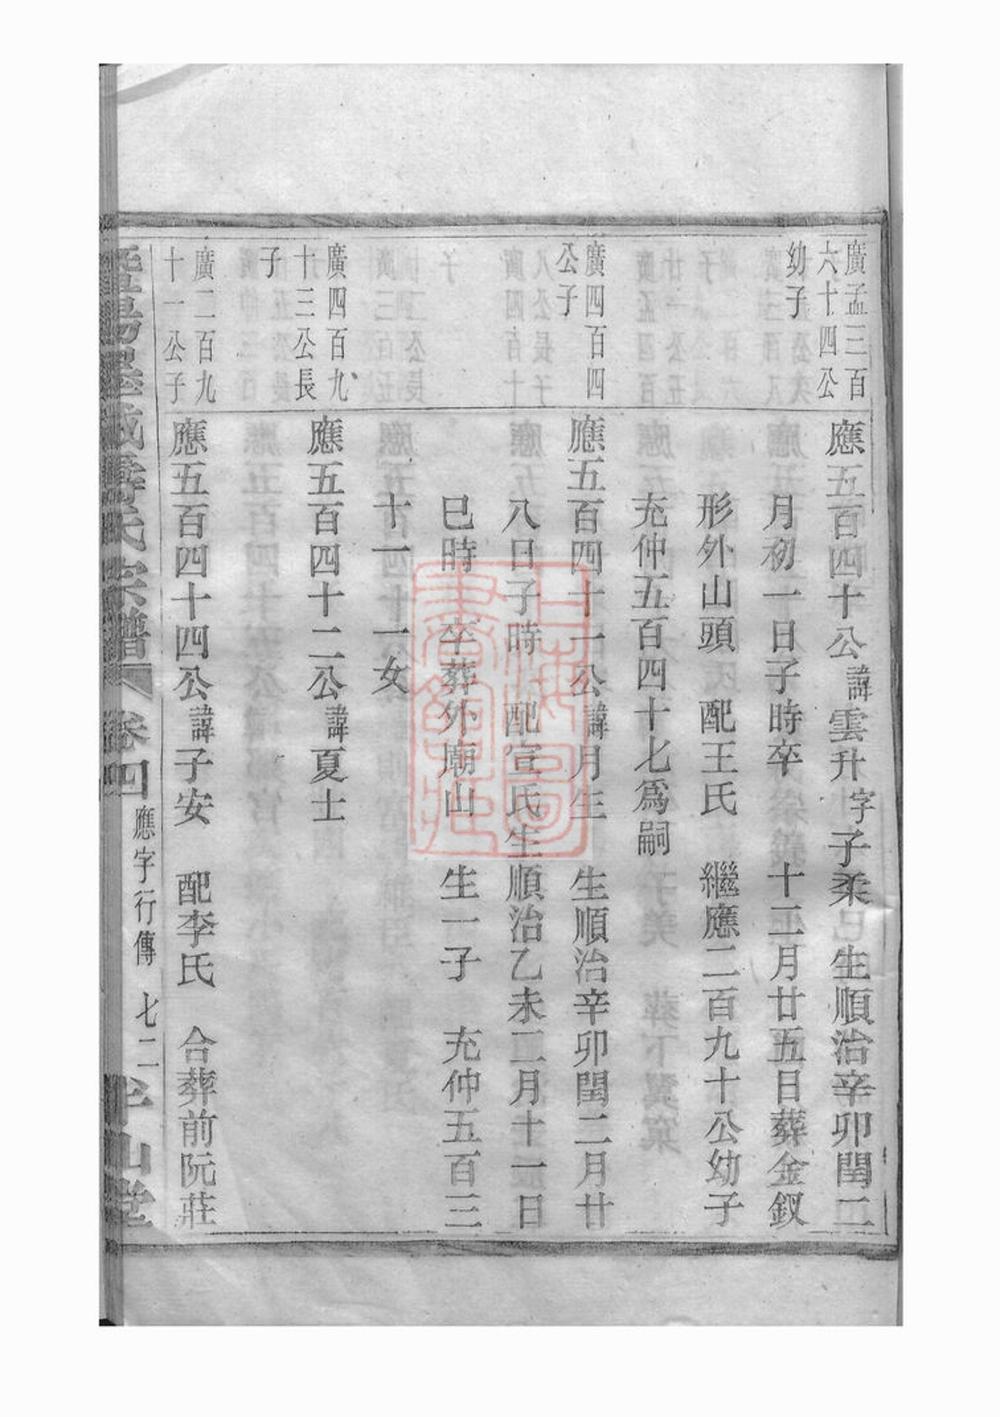 廣孟三百
六十四公
幼子
應五百四十公諱雲升字子柔 生順治辛卯閏二
月初一日子時卒 十二月廿五日葬金釵
形外山頭 配王氏 繼應二百九十公幼子
充仲五百四十七為嗣
廣四百四
公子
應五百四十一公諱月生 生順治辛卯閏二月廿
八日子時 配宣氏生順治乙未二月十一日
巳時 卒葬外廟山 生一子 充仲五百三
十一 一女
廣四百九
十三公長
子
應五百四十二公諱夏士
廣二百九
十一公子
應五百四十四公諱子安 配李氏 合葬前阮莊
暨陽 壽氏宗譜 卷四 應字行傳 七二 半山堂
上海圖
書館藏